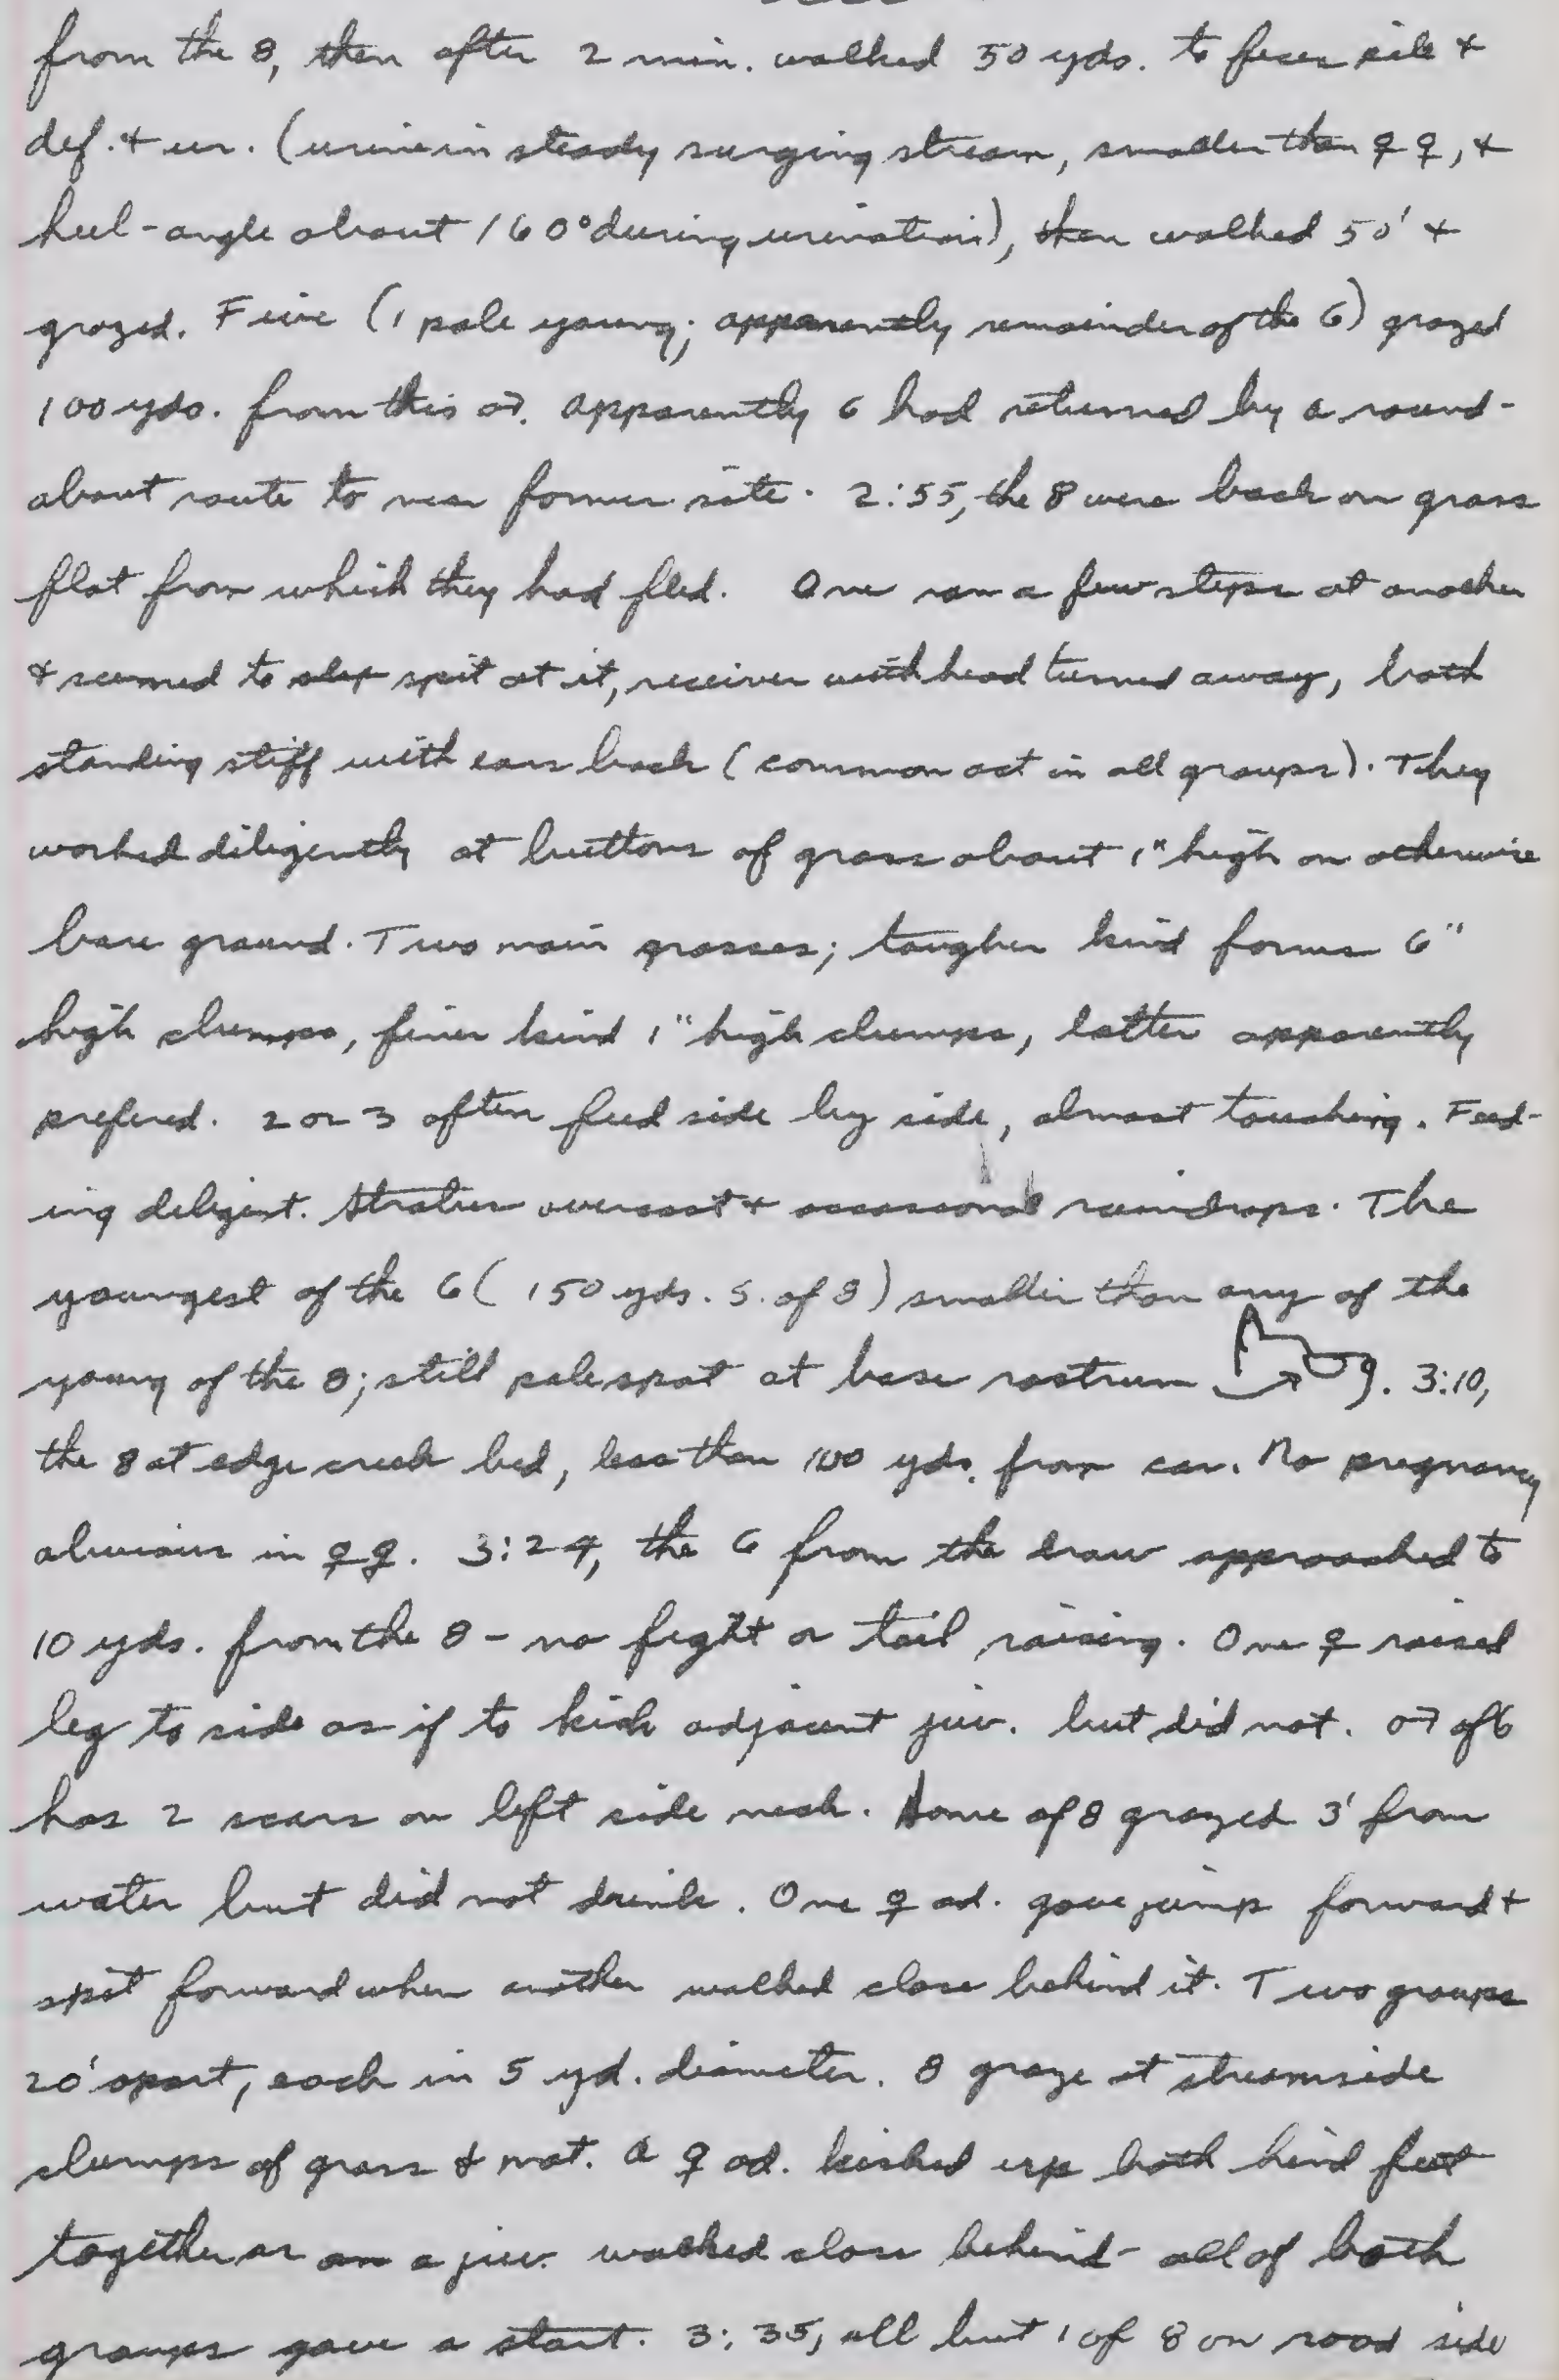 from the 8, then after 2 min. walked 50 yds. to feces pile +
def. + ur. (urine in steady surging stream, smaller than ♀♀, +
heel-angle about 160° during urination), then walked 50' +
grazed. Five (1 pale young; apparently remainder of the 6) grazed
100 yds. from this ♂. Apparently 6 had returned by a round-
about route to near former site. 2:55, the 8 were back on grass
flat from which they had fled. One ran a few steps at another
+ seemed to spit at it, receiver with head turned away, both
standing stiff with ears back (common act in all groups). They
worked diligently at buttons of grass about 1" high on otherwise
bare ground. Two main grasses; tougher kind forms 6"
high clumps, finer kind 1" high clumps, latter apparently
prefered. 2 or 3 often feed side by side, almost touching. Feed-
ing diligent. Stratus overcast + occassional raindrops. The
youngest of the 6 (150 yds. S. of 8) smaller than any of the
young of the 8; still pale spot at base rostrum. 3:10,
the 8 at edge creek bed, less than 100 yds. from car. No pregnancy
obvious in ♀♀. 3:24, the 6 from the draw approached to
10 yds. from the 8 - no fight or tail raising. One ♀ raised
leg to side as if to kick adjacent juv. but did not. ♂ of 6
has 2 scars on left side neck. Some of 8 grazed 3' from
water but did not drink. One ♀ ad. gave jump forward +
spit forward when another walked close behind it. Two groups
20' apart, each in 5 yd. diameter. 8 graze at streamside
clumps of grass + mat. A ♀ ad. kicked up both hind feet
together as a juv. walked close behind - all of both
groups gave a start. 3:35, all but 1 of 8 on road side